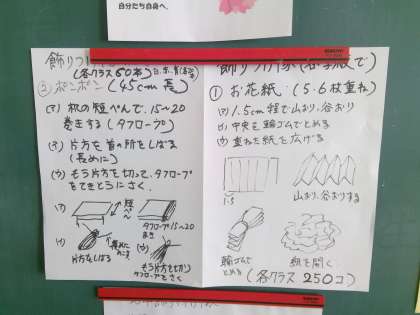 自分たち自身へ
(各クラス60本)
③ ポンポン (45cm長)
(ア) 机の短ぺんで、15〜20
巻きする (タフロープ)
(イ) 片方を首の所をしばる
(長めに)
(ウ) もう片方を切って、タフロープ
をてきとうにさく。
(ア)
短ぺん
タフロープ15〜20
まき
(イ)
片方をしばる
長めにのこす
(ウ)
もう片方を切り
タフロープをさく
① お花紙 (5・6枚重ね)
(ア) 1.5cm程で山おり、谷おり
(イ) 中央を輪ゴムでとめる
(ウ) 重ねた紙を広げる
1.5
山おり、谷おりする
輪ゴムで
とめる
紙を開く
(各クラス 250コ)